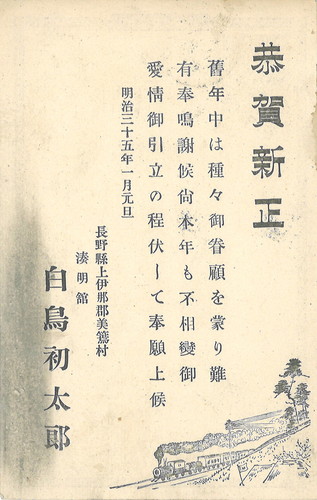 恭賀新正
舊年中は種々御眷顧を蒙り難
有奉鳴謝候尙本年も不相變御
愛情御引立の程伏して奉願上候
明治三十五年一月元旦
長野縣上伊那郡美篶村
湊明舘
白鳥初太郎